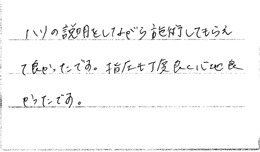 ハリの説明をしながら施術してもらえ
て良かったです。指圧も丁度良く心地良
かったです。